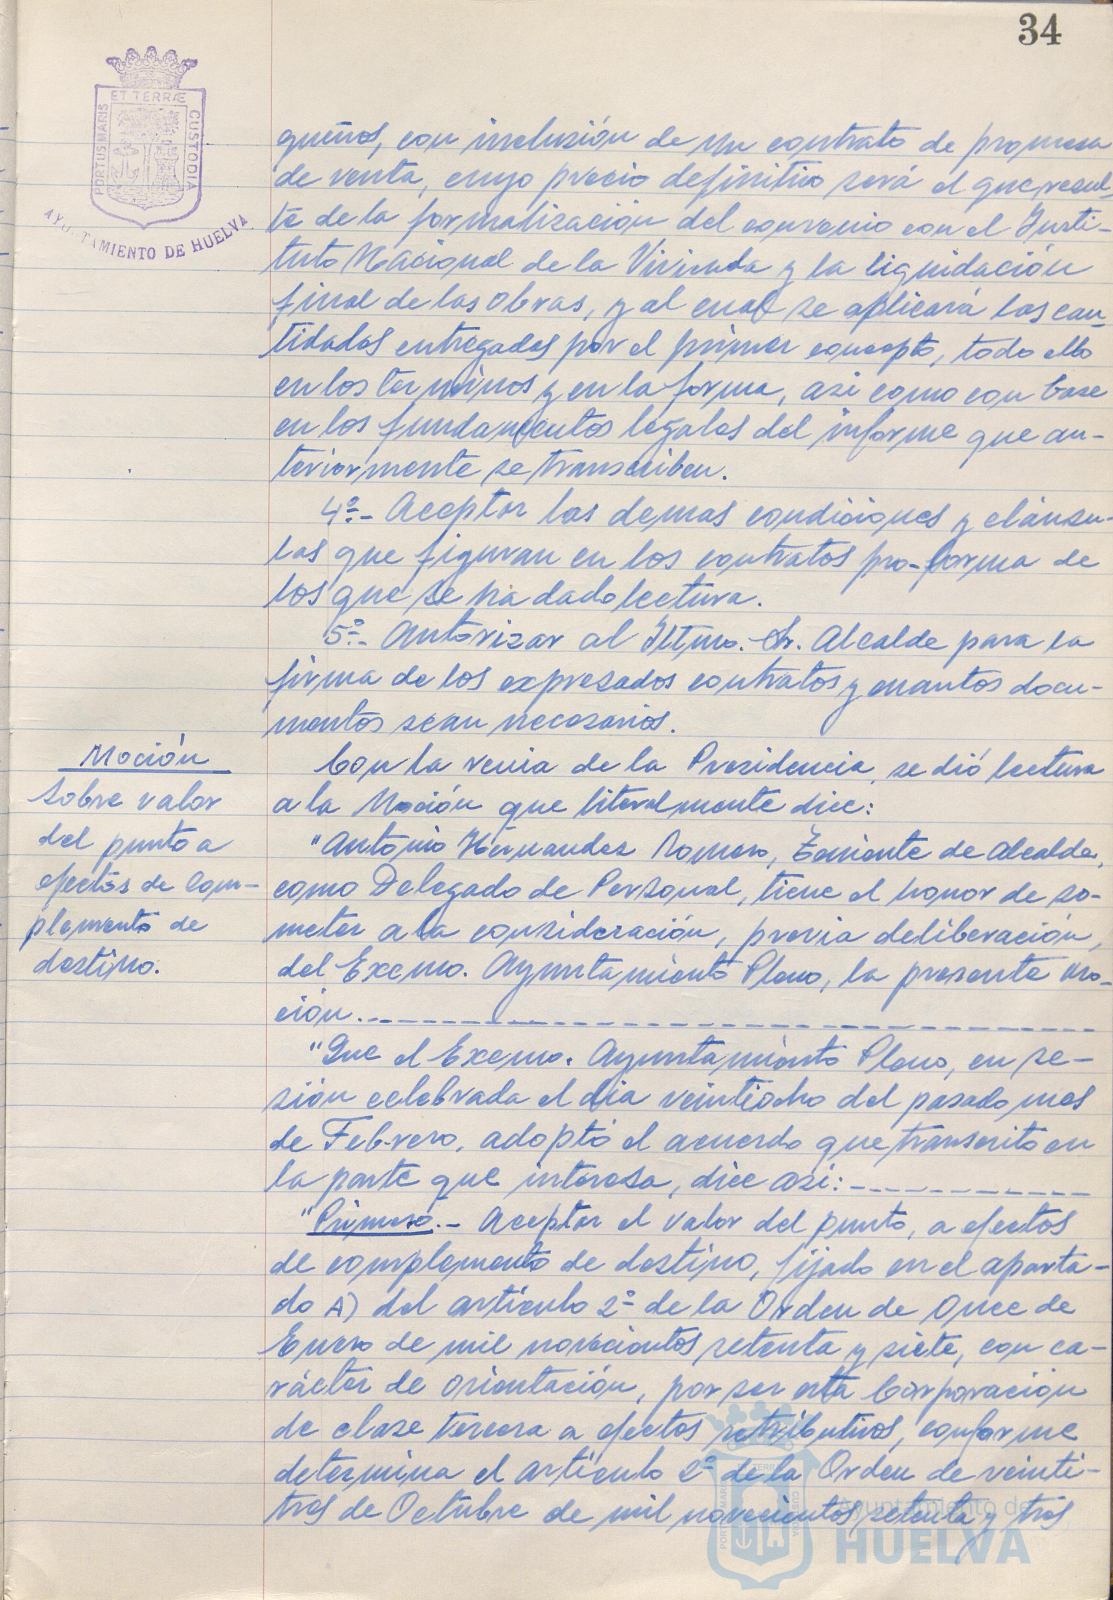 34
ET TERRÆ
PORTUS MARIS
CUSTODIA
AYUNTAMIENTO DE HUELVA
queños, con inclusión de un contrato de promesa
de venta, cuyo precio definitivo será el que resul-
te de la formalización del convenio con el Insti-
tuto Nacional de la Vivienda y la liquidación
final de las obras, y al cual se aplicará las can-
tidades entregadas por el primer concepto, todo ello
en los terminos y en la forma, asi como con base
en los fundamentos legales del informe que an-
teriormente se transcriben.
4º.- Aceptar las demas condiciones y cláusu-
las que figuran en los contratos pro-forma de
los que se ha dado lectura.
5º.- Autorizar al Iltmo. Sr. Alcalde para la
firma de los expresados contratos y cuantos docu-
mentos sean necesarios.
Moción
Sobre valor
del punto a
efectos de com-
plemento de
destino.
Con la venia de la Presidencia, se dió lectura
a la Moción que literalmente dice:
"Antonio Hernandez Romero, Teniente de Alcalde,
como Delegado de Personal, tiene el honor de so-
meter a la consideración, previa deliberación,
del Excmo. Ayuntamiento Pleno, la presente mo-
ción.
"Que el Excmo. Ayuntamiento Pleno, en se-
sión celebrada el dia veintiocho del pasado mes
de Febrero, adoptó el acuerdo que transcrito en
la parte que interesa, dice asi:
"Primero.- Aceptar el valor del punto, a efectos
de complemento de destino, fijado en el aparta-
do A) del articulo 2º de la Orden de Once de
Enero de mil novecientos setenta y siete, con ca-
rácter de orientación, por ser esta Corporación
de clase tercera a efectos retributivos, conforme
determina el articulo 2º de la Orden de veinti-
tres de Octubre de mil novecientos setenta y tres
Ayuntamiento de
HUELVA